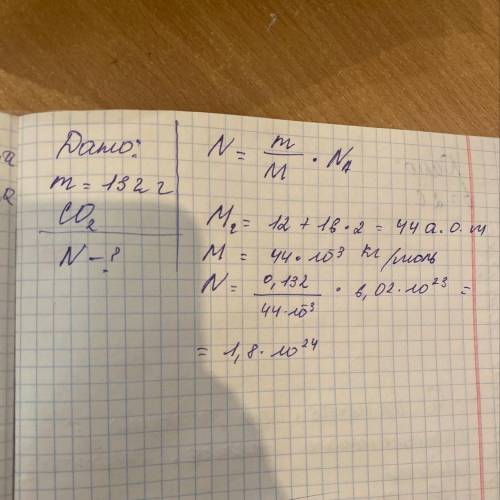 Дано:
m = 132 г
CO₂
N - ?
N = m/M · Nᴀ
M₂ = 12 + 16 · 2 = 44 а. о. м
M = 44 · 10⁻³ кг/моль
N = 0,132/44·10⁻³ · 6,02 · 10²³ =
= 1,8 · 10²⁴